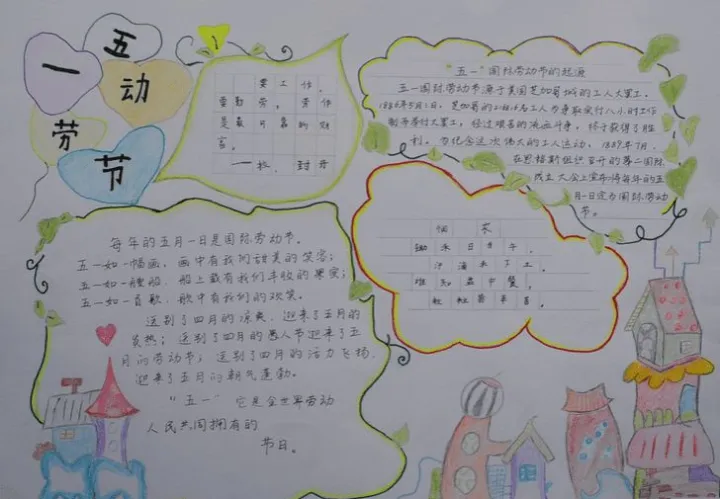 五一劳动节
要工作，
要勤劳，劳作
是最可靠的财
富。
——拉·封丹
“五一”国际劳动节的起源
五一国际劳动节源于美国芝加哥城的工人大罢工。
1886年5月1日，芝加哥的216000名工人为争取实行八小时工作
制而举行大罢工，经过艰苦的流血斗争，终于获得了胜
利。为纪念这次伟大的工人运动，1889年7月，
在恩格斯组织召开的第二国际
成立大会上宣布将每年的五
月一日定为国际劳动
节。
悯农
锄禾日当午，
汗滴禾下土。
谁知盘中餐，
粒粒皆辛苦。
每年的五月一日是国际劳动节。
五一如一幅画，画中有我们甜美的笑容；
五一如一艘船，船上载有我们丰收的果实；
五一如一首歌，歌中有我们的欢笑。
送别了四月的凉爽，迎来了五月的
炎热；送别了四月的愚人节迎来了五
月的劳动节；送别了四月的活力飞扬，
迎来了五月的朝气蓬勃。
“五一” 它是全世界劳动
人民共同拥有的
节日。